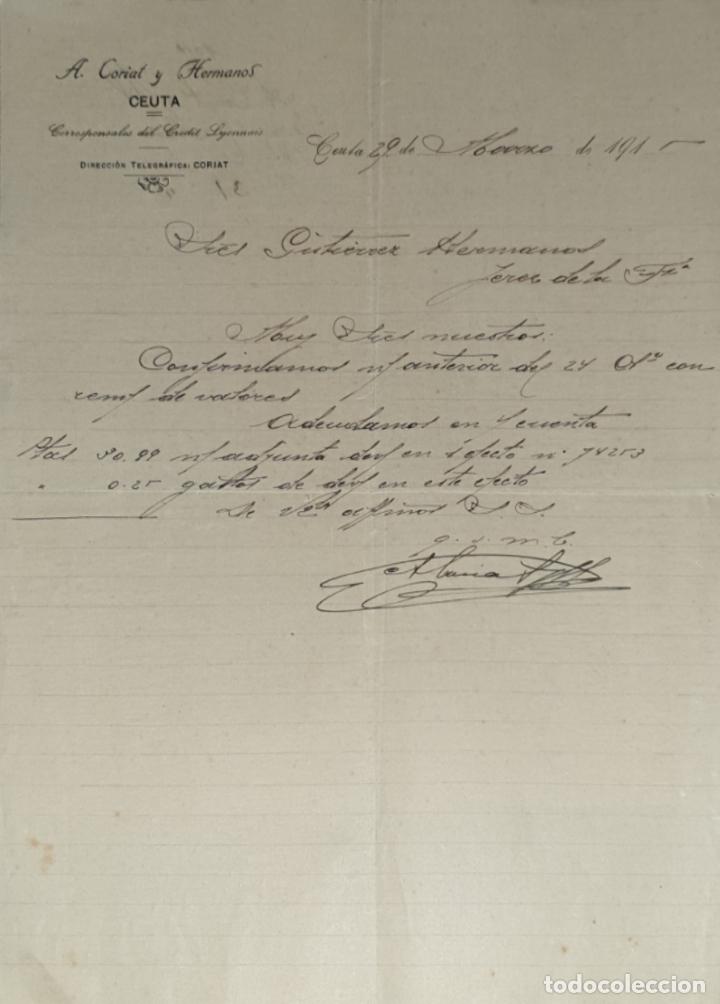 A. Coriat y Hermanos
CEUTA
Corresponsales del Credit Lyonnais
DIRECCIÓN TELEGRÁFICA: CORIAT
Ceuta 29 de Marzo de 191
Sres Gutiérrez Hermanos
Jerez de la Fra
Muy Sres nuestros:
Confirmamos n/ anterior del 24 con
de valores
Adeudamos en s/ cuenta
Ptas 30.99 n/ adjunta dev/ en 1 efecto nº 74253
" 0.25 gastos de dev/ en este efecto
De Vds affmos S. S.
q. s. m. b.
todocoleccion
todocoleccion.net